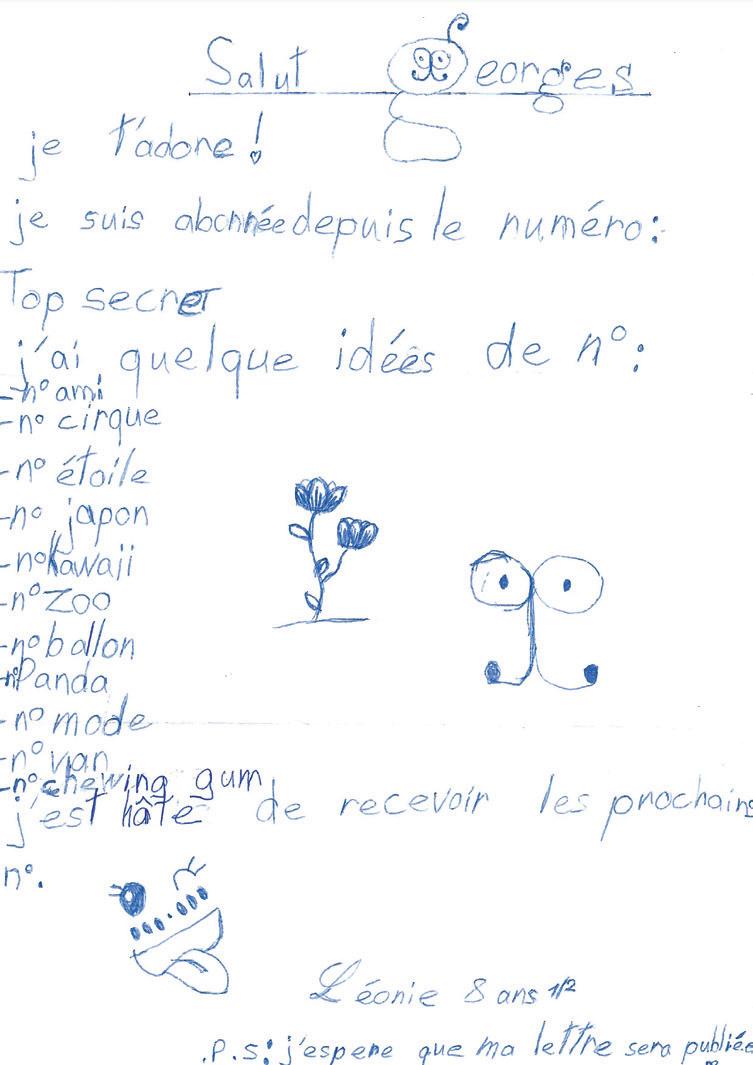 Salut Georges
je t'adore!
je suis abonnée depuis le numéro:
Top secret
j'ai quelque idées de n°:
-n° ami
-n° cirque
-n° étoile
-n° japon
-n° Kawaji
-n° Zoo
-n° ballon
-n° Panda
-n° mode
-n° van
-n° chewing gum
j'est hâte de recevoir les prochains
n°.
Léonie 8 ans 1/2
.P.S: j'espere que ma lettre sera publiée